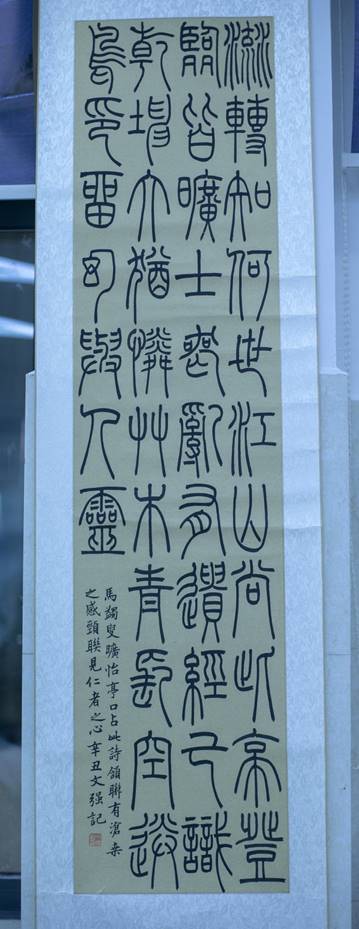 流轉知何世江山尚此亭登
臨皆曠士喪亂有遺經已識
乾坤大猶憐艸木青長空送
鳥印留幻與人靈
馬蠲叟曠怡亭口占此詩領聯有滄桒
之感頸聯見仁者之心辛丑文强記